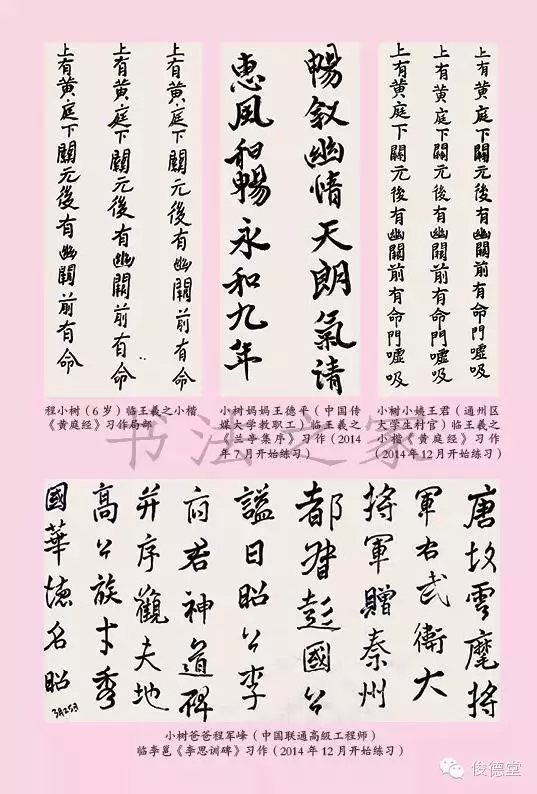 上有黄庭下關元後有幽闕前有命
上有黄庭下關元後有幽闕前有命
上有黄庭下關元後有幽闕前有命
程小树（6岁）临王羲之小楷
《黄庭经》习作局部
暢叙幽情天朗氣清
惠風和暢永和九年
小树妈妈王德平（中国传
媒大学教职工）临王羲之
《兰亭集序》习作（2014
年7月开始练习）
上有黄庭下關元後有幽闕前有命門噓吸
上有黄庭下關元後有幽闕前有命門噓吸
上有黄庭下關元後有幽闕前有命門噓吸
小树小姨王君（通州区
大学生村官）临王羲之
小楷《黄庭经》习作
（2014年12月开始练习）
书法之家
唐故雲麾將
軍右武衛大
將軍贈秦州
都督彭國公
謚曰昭公李
府君神道碑
并序觀夫地
高公族才秀
國華德名昭
3月25日
小树爸爸程军峰（中国联通高级工程师）
临李邕《李思训碑》习作（2014年12月开始练习）
俊德堂